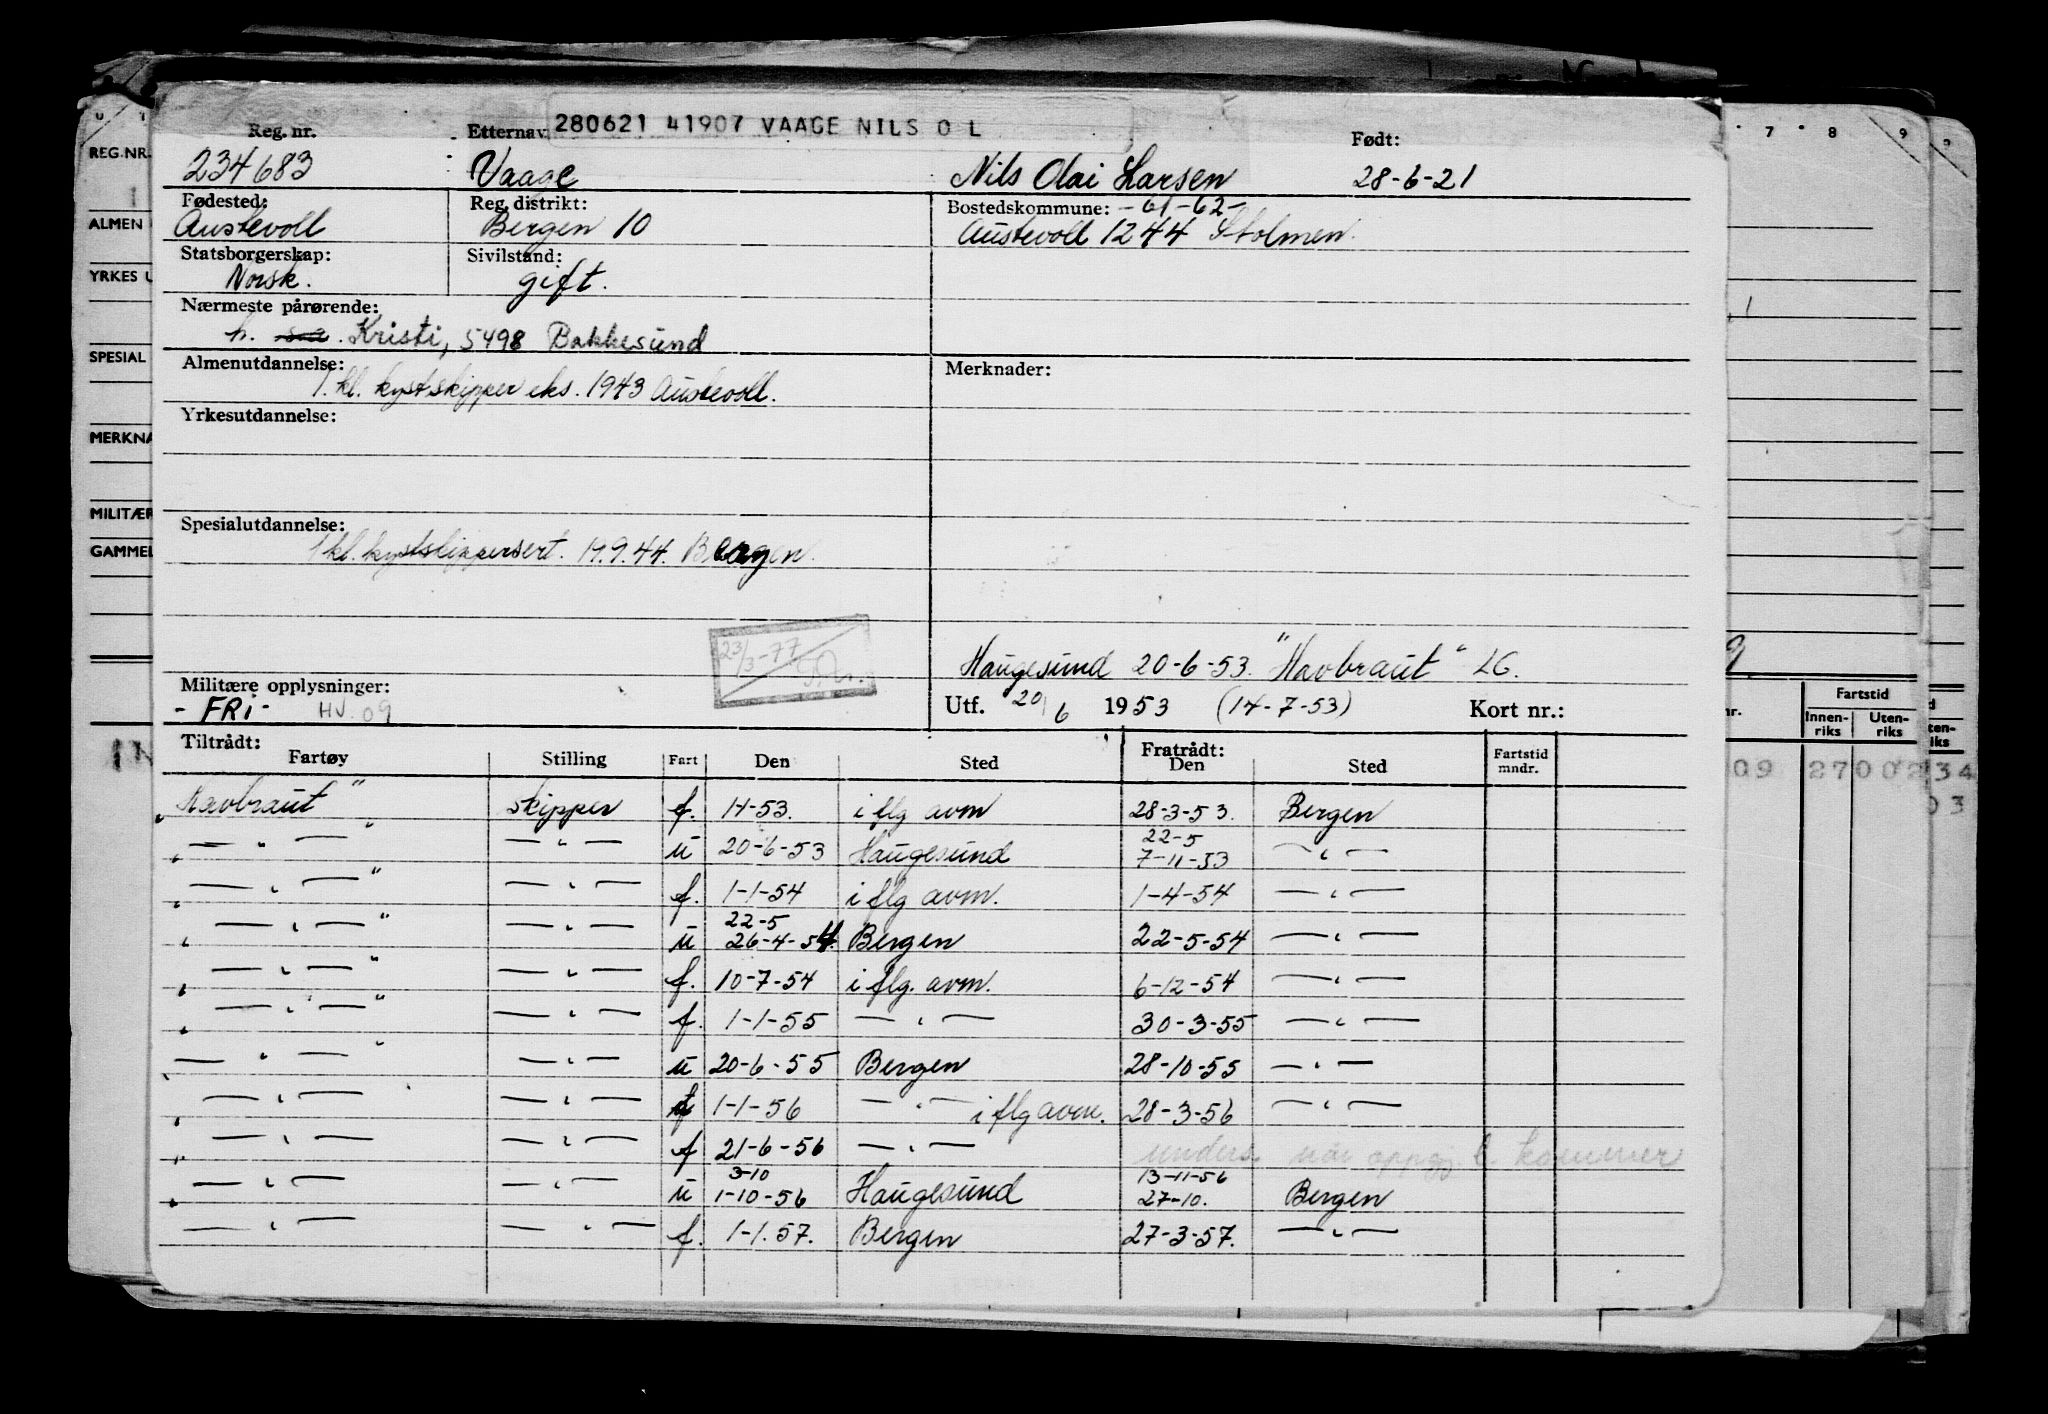 280621 41907 VAAGE NILS O L
Reg. nr. Etternav. Født:
234683 Vaage Nils Olai Larsen 28-6-21
Fødested: Reg. distrikt: Bostedskommune: -61-62-
Austevoll Bergen 10 Austevoll 1244 Stolmen.
Statsborgerskap: Sivilstand:
Norsk. gift.
Nærmeste pårørende:
h. Kristi, 5498 Bakkesund
Almenutdannelse: Merknader:
1. kl. kystskipper eks. 1943 Austevoll.
Yrkesutdannelse:
Spesialutdannelse:
1 kl. kystskippersert. 19.9.44. Bergen.
23/3-77
Haugesund 20-6-53. "Havbraut" LG.
Militære opplysninger: Utf. 20/6 1953 (14-7-53) Kort nr.:
- FRI - HV. 09
Tiltrådt: Fratrådt:
Fartøy Stilling Fart Den Sted Den Sted Fartstid mndr.
"Havbraut" skipper f. 1-1-53. i flg avm 28-3-53. Bergen
22-5
" — " — " — " — u 20-6-53 Haugesund 7-11-53 — " —
" — " — " — " — f. 1-1-54 i flg avm. 1-4-54 — " —
22-5
" — " — " — " — u 26-4-54. Bergen 22-5-54 — " —
" — " — " — " — f. 10-7-54 i flg. avm. 6-12-54 — " —
" — " — " — " — f. 1-1-55 — " — 30-3-55 — " —
" — " — " — " — u 20-6-55 Bergen 28-10-55 — " —
" — " — — " — f 1-1-56 — " — i flg avm. 28-3-56 — " —
" — " — — " — f 21-6-56 — " — unders. når oppg kommer
3-10 13-11-56
" — " — — " — u 1-10-56 Haugesund 27-10. Bergen
— " — — " — f. 1-1.57. Bergen 27-3-57. — " —
REG.NR.
ALMEN
YRKES U
SPESIAL
MERKNA
MILITÆR
GAMMEL
7 8 9
Fartstid
Innen-riks Uten-riks
09 27 002 34
03